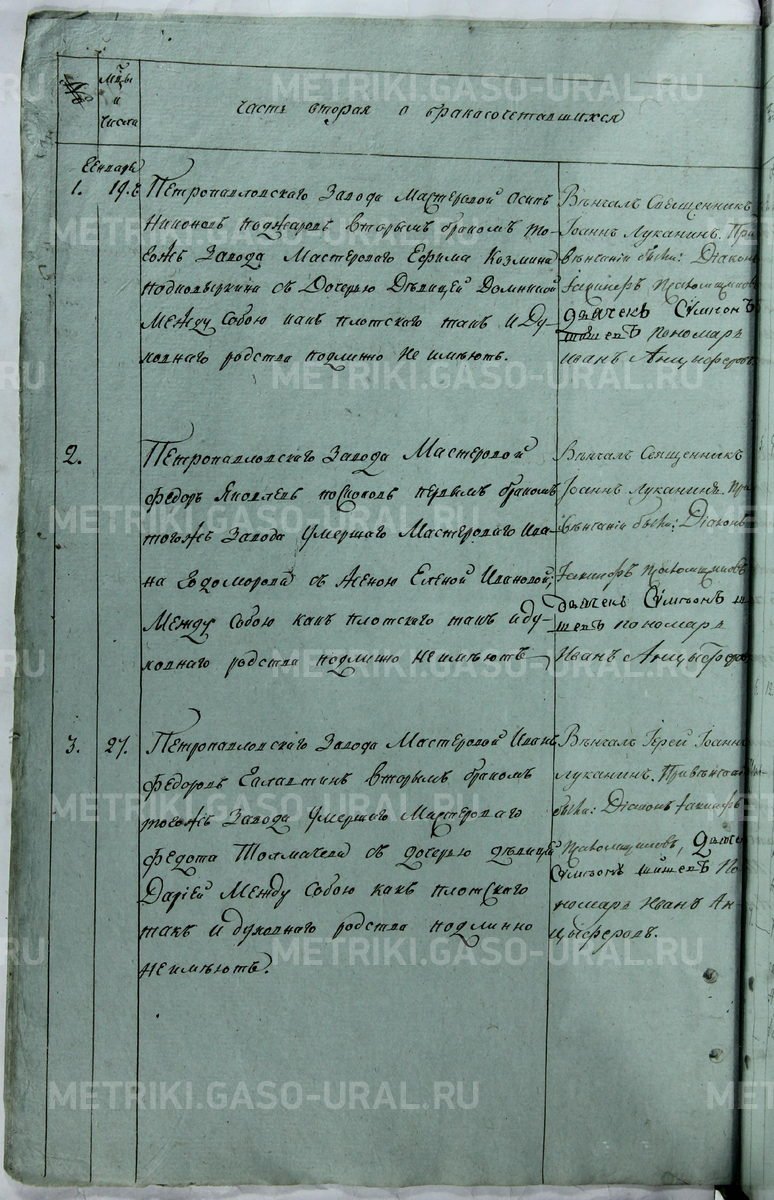 №
Мцы
и
числа
часть вторая о бракасочетавшихся
Генварь
1.
19.
Петропавловскаго Завода Мастеровой Осипъ
Никоновъ вторымъ бракомъ то-
гожъ Завода Мастероваго Ефима Козмина
съ Дочерью Дѣвицей Домникой
Между собою какъ плотскаго такъ и Ду-
ховнаго родства подлинно Не имѣютъ.
Вѣнчалъ Священникъ
Іоаннъ Луканинъ. При
вѣнчаніи были: Діаконъ
дьячекъ Сѵмеонъ
Шишевъ пономарь
Иванъ Анцыферовъ
2.
Петропавловскаго Завода Мастеровой
Федоръ Яковлевъ первымъ бракомъ
тогожъ Завода умершаго Мастероваго Ива-
на съ Женою Еленой Ивановой,
Между собою какъ плотскаго такъ и ду-
ховнаго родства подлинно не имѣютъ
Вѣнчалъ Священникъ
Іоаннъ Луканинъ. При
вѣнчаніи были: Діаконъ
дьячекъ Сѵмеонъ Ши
шевъ пономарь
Иванъ Анцыферов
3.
27.
Петропавловскаго Завода Мастеровой Иванъ
Федоровъ вторымъ бракомъ
тогожъ Завода умершаго Мастероваго
Федота Толмачева съ дочерью дѣвицей
Даріей Между собою какъ плотскаго
такъ и духовнаго родства подлинно
не имѣютъ.
Вѣнчалъ Іерей Іоаннъ
Луканинъ. При вѣнчаніи
были: Діаконъ
дьяче
Сѵмеонъ Шишевъ По
номарь Иванъ Ан-
цыферовъ.
METRIKI.GASO-URAL.RU